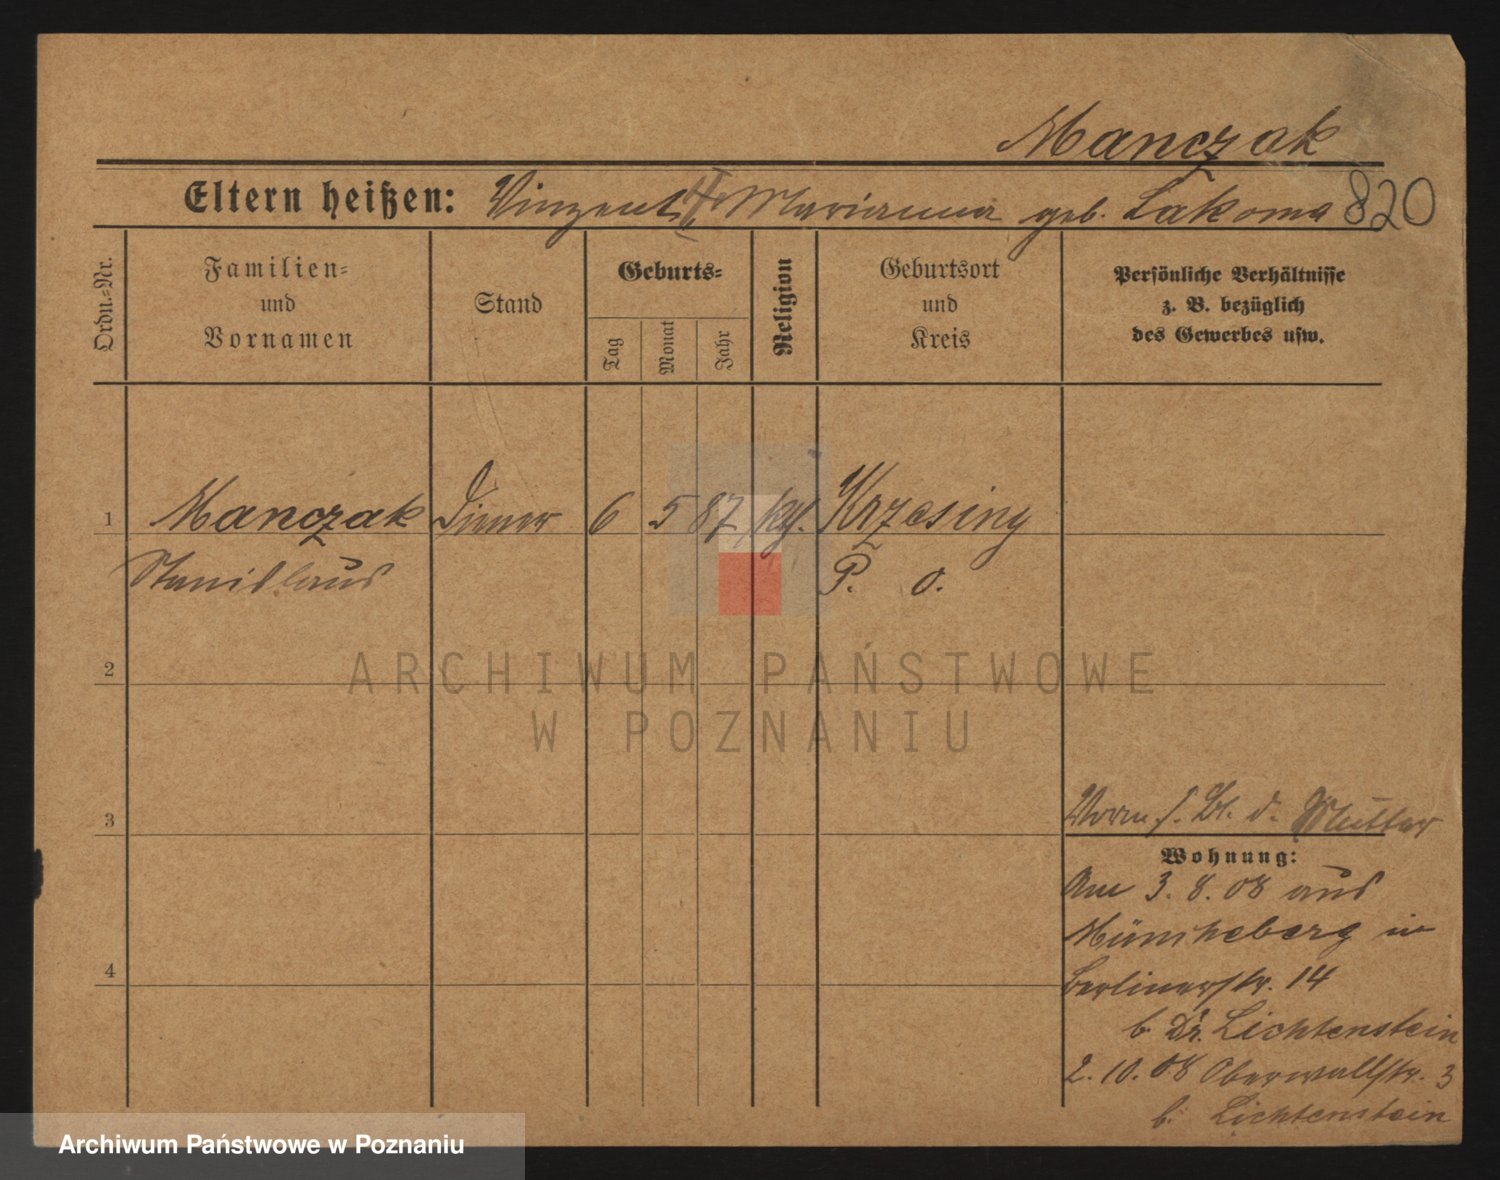 Manczak
Eltern heißen: Vinzent Marianna geb. Lakoma 820
Ordn.-Nr.
Familien-
und
Vornamen
Stand
Geburts-
Tag
Monat
Jahr
Religion
Geburtsort
und
Kreis
Persönliche Verhältnisse
z. B. bezüglich
des Gewerbes usw.
1 Manczak Diener 6 5 87 kath. Krzesiny
Stanislaus P. O.
2
3
4
Mutter
Wohnung:
Am 3. 8. 08 aus
Müncheberg in
Berlinerstr. 14
b. Dr. Lichtenstein
2. 10. 08 Oberwallstr. 3
b. Lichtenstein
ARCHIWUM PAŃSTWOWE
W POZNANIU
Archiwum Państwowe w Poznaniu